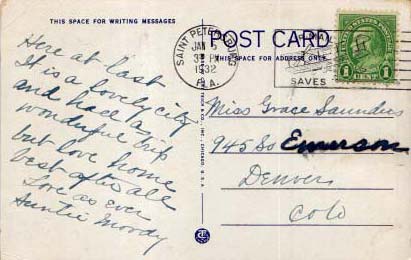 THIS SPACE FOR WRITING MESSAGES
Here at last
It is a lovely city
and had a
wonderful trip
but love home
best after all
Love as ever
Auntie Moody
POST CARD
THIS SPACE FOR ADDRESS ONLY
SAINT PETERSBURG
JAN 5
3 PM
1932
FLA.
SAVES
UNITED STATES POSTAGE
1 CENT 1
Miss Grace Saunders
945 So Emerson
Denver
Colo
CHICAGO, U.S.A.